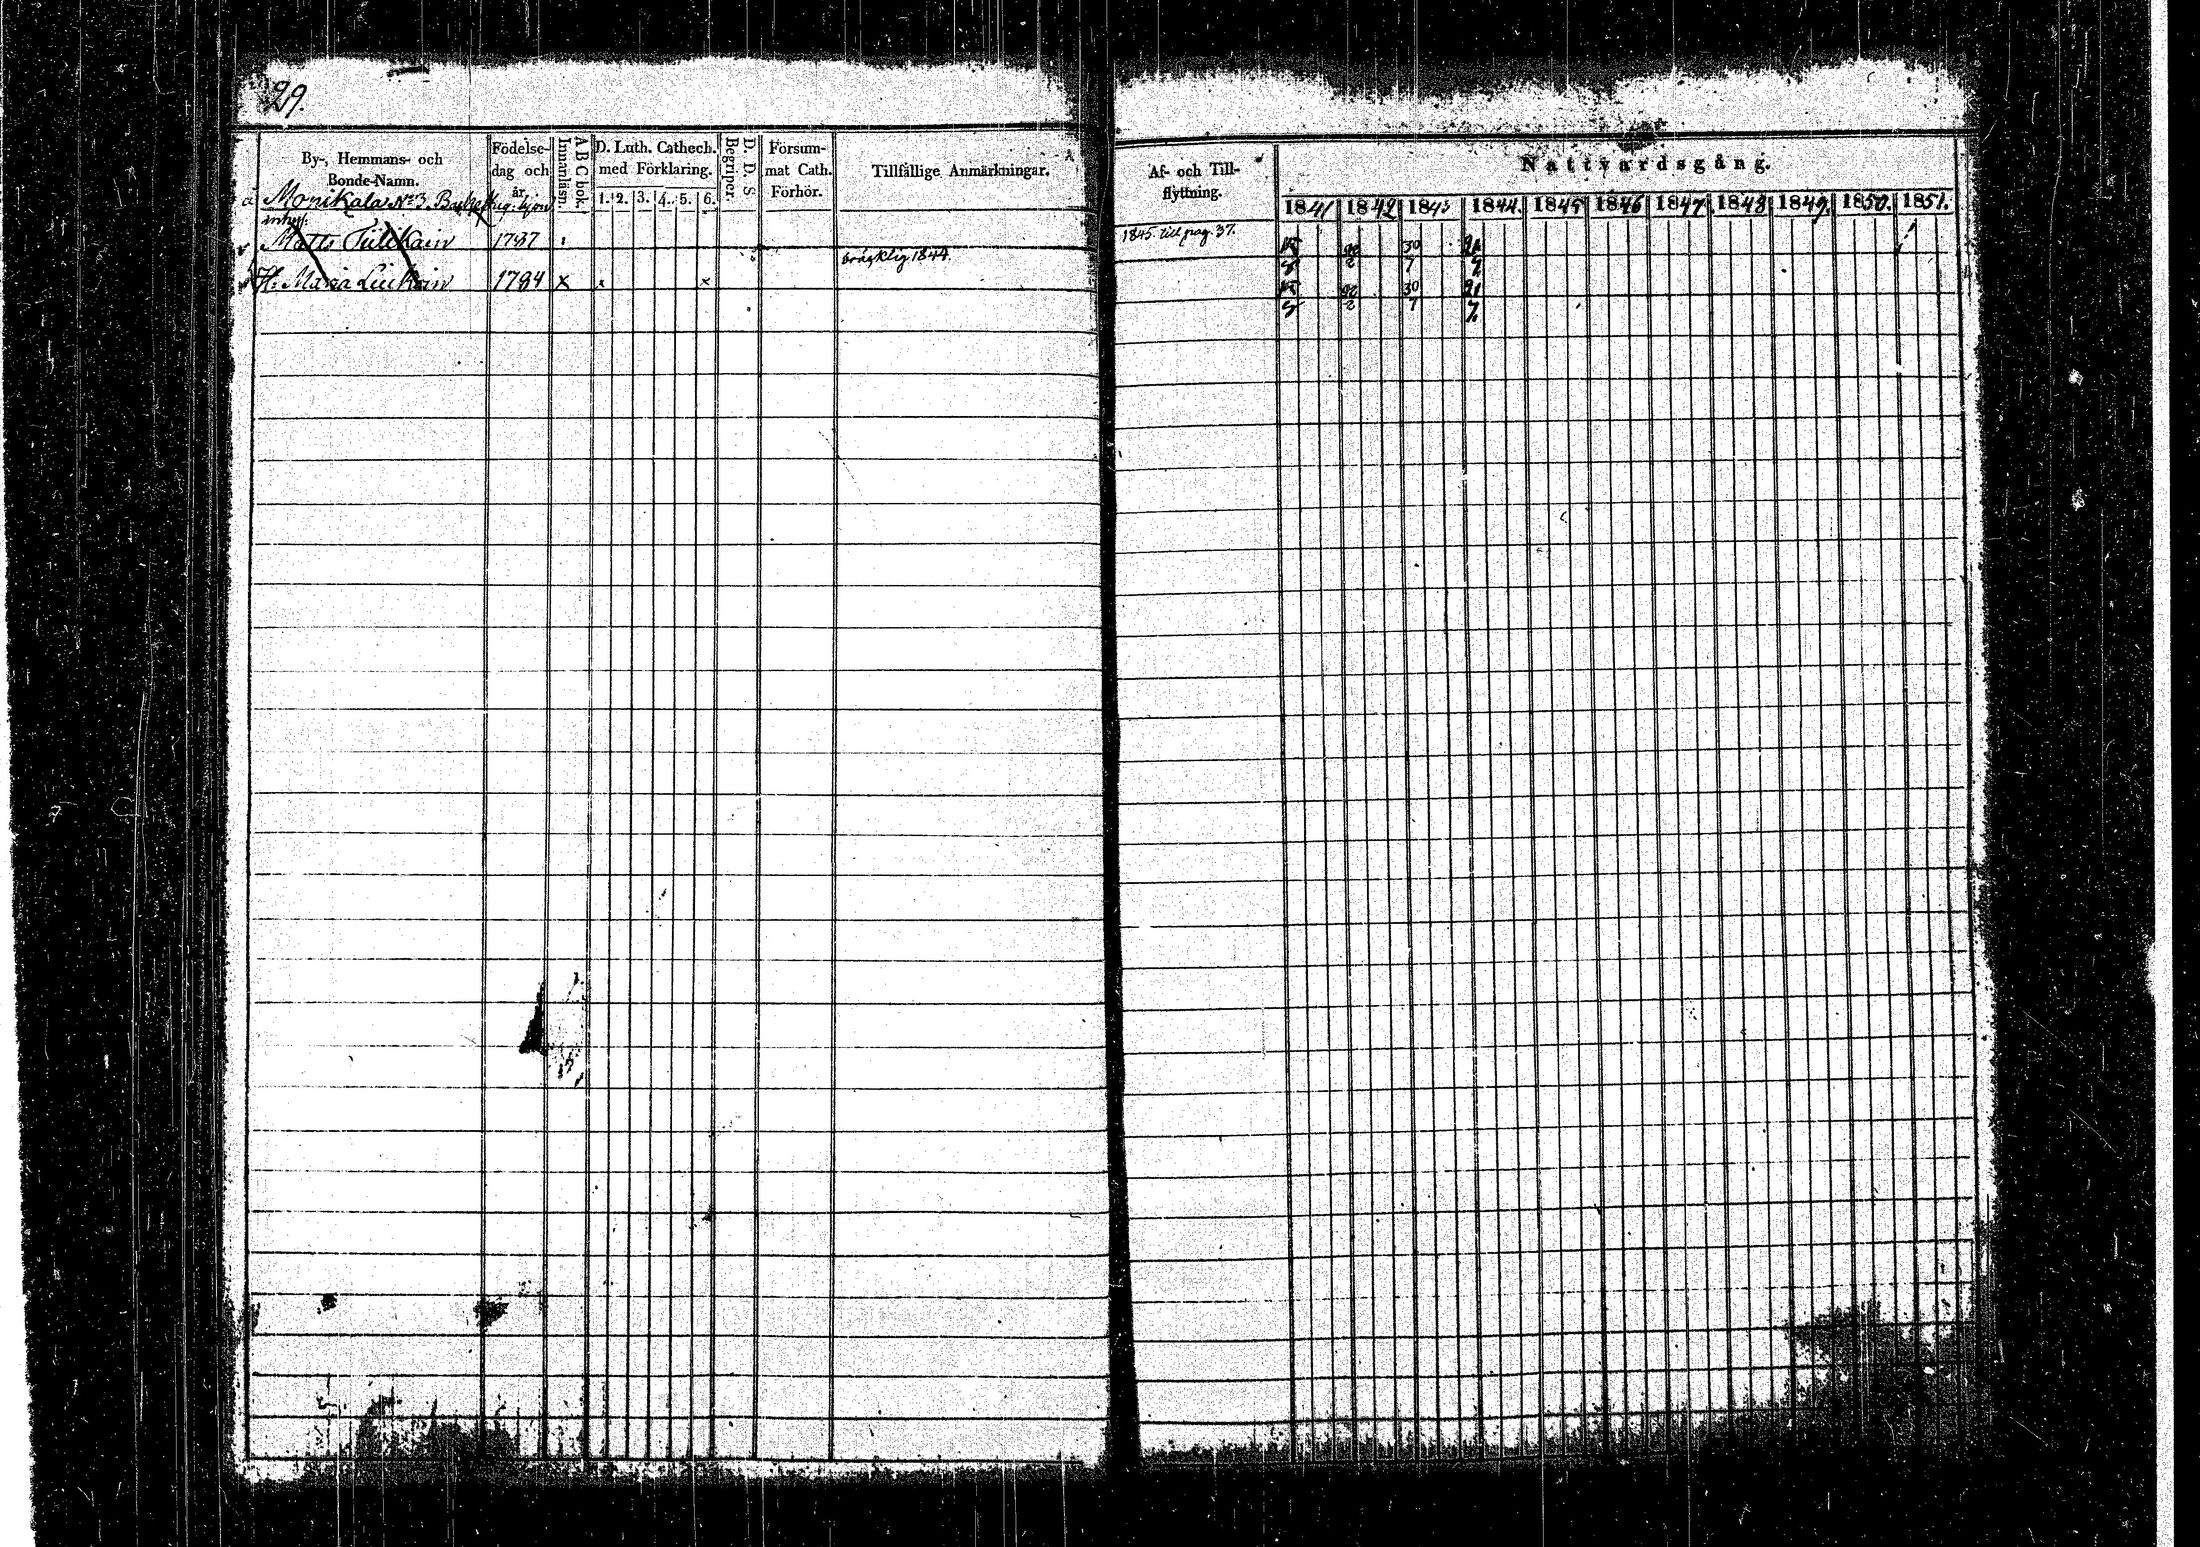 29.
By-, Hemmans- och
Bonde-Namn.
Födelse-
dag och
år.
A B C bok.
Innanläsn.
D. Luth. Cathech.
med Förklaring.
1. 2. 3. 4. 5. 6.
D. D. S
Begriper.
Försum-
mat Cath.
Förhör.
Tillfällige Anmärkningar.
Monikala No 3.
inhys.
Matts Tulikain 1737
bräcklig 1844.
H. Maria Liukoin 1784 x x
Af- och Till-
flyttning.
Nattvardsgång.
1841 1842 1843 1844. 1845 1846 1847. 1848 1849. 1850. 1851.
1845 till pag. 37.
30
2 7 7
30 21
2 7 7.